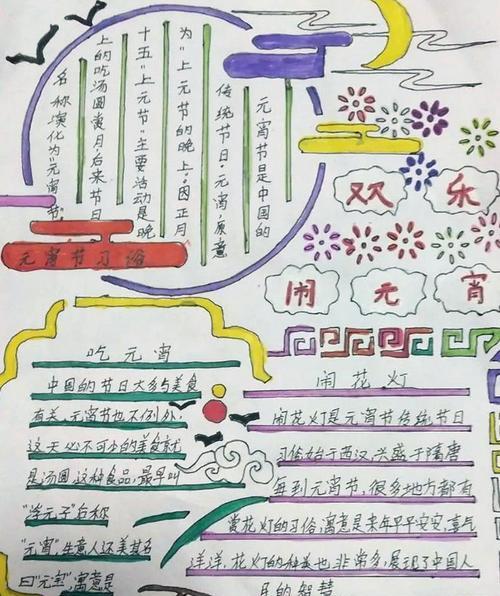 元宵节是中国的
传统节日·元宵,原意
为“上元节的晚上”因正月
十五“上元节”主要活动是晚
上的吃汤圆赏月后来节日
名称演化为“元宵节”.
元宵节习俗
欢乐
闹元宵
吃元宵
中国的节日大多与美食
有关,元宵节也不例外.
这天必不可少的美食就
是汤圆.这种食品,最早叫
“浮元子”后称
“元宵”生意人还美其名
曰“元宝”,寓意是
闹花灯
闹花灯是元宵节传统节日
习俗始于西汉,兴盛于隋唐
每到元宵节,很多地方都有
赏花灯的习俗,寓意是来年平平安安,喜气
洋洋,花灯的种类也非常多,展现了中国人
民的智慧